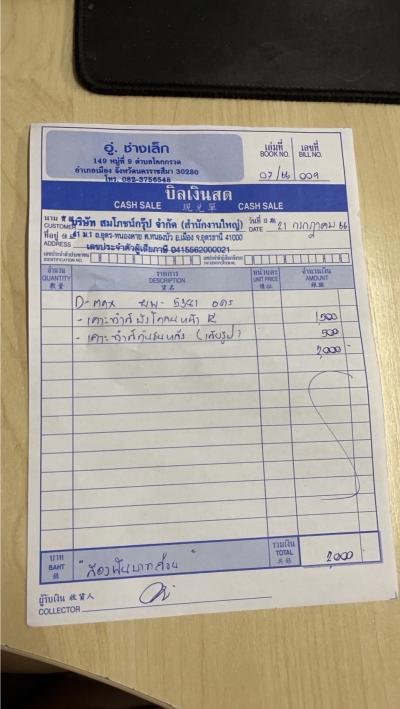 อู่. ช่างเล็ก
149 หมู่ที่ 9 ตำบลโคกกรวด
อำเภอเมือง จังหวัดนครราชสีมา 30280
โทร. 082-3756548
เล่มที่ เลขที่
BOOK NO. BILL NO.
07/66 009
บิลเงินสด
CASH SALE 現兌單 CASH SALE
นาม บริษัท สมโภชน์กรุ๊ป จำกัด (สำนักงานใหญ่) วันที่
CUSTOMER DATE 21 กรกฎาคม 66
ที่อยู่ 41 ม.1 ถ.อุดร-หนองคาย ต.หนองบัว อ.เมือง จ.อุดรธานี 41000
ADDRESS เลขประจำตัวผู้เสียภาษี 0415562000021
จำนวน รายการ หน่วยละ จำนวนเงิน
QUANTITY DESCRIPTION UNIT PRICE AMOUNT
數量 貨名 價值 銀碼
D-max ผผ-5321 อุดร
- เคาะทำสีบังโคลนหน้า R 1,500
- เคาะทำสีกันชนหลัง (เก็บรูป) 500
2,000
บาท รวมเงิน
BAHT "สองพันบาทถ้วน" TOTAL 2,000
銖 共銀
ผู้รับเงิน 收貨人
COLLECTOR